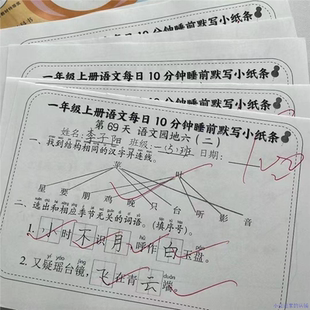 一年级上册语文每日10分钟睡前默写小纸条
一年级上册语文每日10分钟睡前默写小纸条
一年级上册语文每日10分钟睡前默写小纸条
第69天 语文园地六（二）
姓名: 李子阳 班级: 一(3)班 日期:
100
一、找到结构相同的汉字并连线。
星 要 朋 鸡 晚 只 台 听 影 音
二、选出和相应季节无关的词语。（填序号）。
1. 小时不识月,呼作白玉盘。
2. 又疑瑶台镜, 飞在青云端。